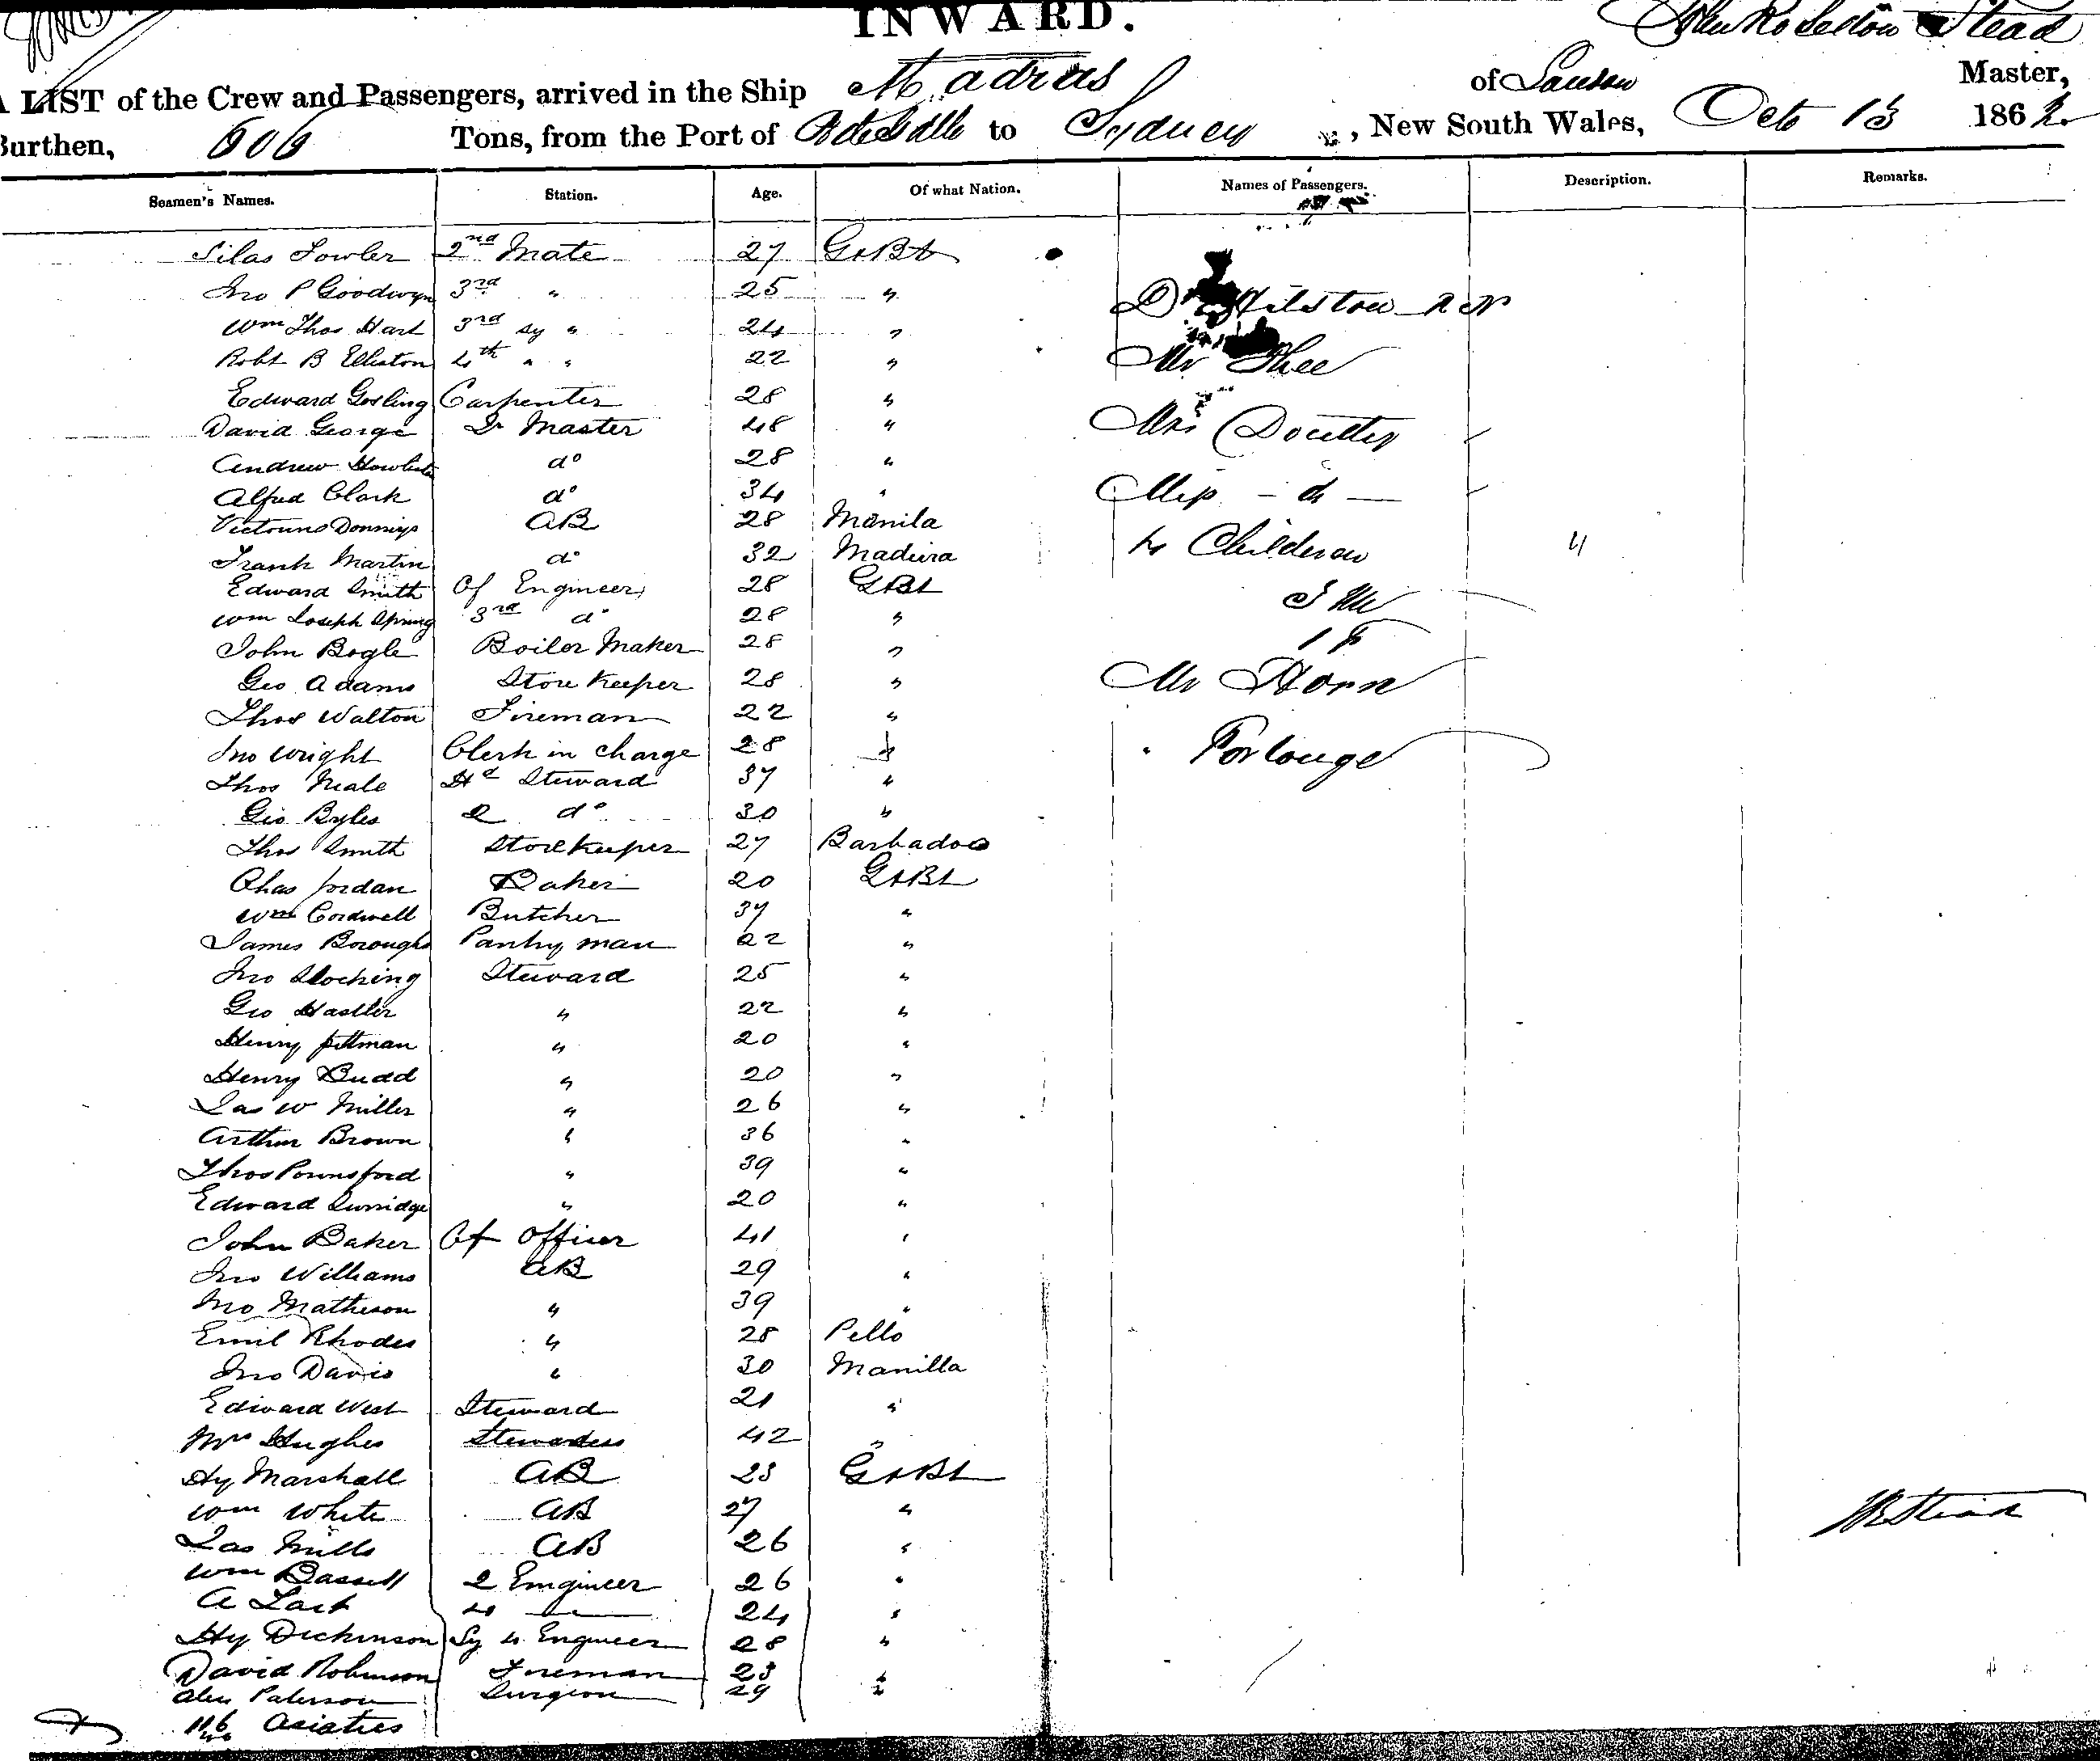 INWARD.
John Robertson Stead
LIST of the Crew and Passengers, arrived in the Ship Madras of Master,
Burthen, 606 Tons, from the Port of to Sydney, New South Wales, Oct 13 1862
Seamen's Names. Station. Age. Of what Nation. Names of Passengers. Description. Remarks.
Silas Fowler 2nd Mate 27 Gt Bt
Jno P Goodwyn 3rd " 25 "
Wm Thos Hart 3rd Sy " 24 "
Robt B Elliston 4th " " 22 "
Edward Gosling Carpenter 28 "
David George Qr Master 48 "
Andrew do 28 "
Alfred Clark do 34 "
AB 28 Manila
Frank Martin do 32 Madeira
Edward Smith Cf Engineer 28 Gt Bt
Wm Joseph Spring 3rd do 28 "
John Bogle Boiler Maker 28 "
Geo Adams Store Keeper 28 "
Thos Walton Fireman 22 "
Jno Wright Clerk in charge 28 "
Thos Neale Hd Steward 37 "
Geo Byles 2 do 30 "
Thos Smith Storekeeper 27 Barbadoes
Chas Jordan Baker 20 Gt Bt
Wm Cordwell Butcher 37 "
James Boroughs Pantry man 22 "
Jno Stocking Steward 25 "
Geo Hastler " 22 "
Henry Pittman " 20 "
Henry Budd " 20 "
Jas W Miller " 26 "
Arthur Brown " 36 "
Thos Pounsford " 39 "
Edward Surridge " 20 "
John Baker Cf Officer 41 "
Jno Williams AB 29 "
Jno Matheson " 39 "
Emil Rhodes " 28 Pello
Jno Davis " 30 Manilla
Edward West Steward 21 "
Mrs Hughes Stewardess 42 "
Hy Marshall AB 23 Gt Bt
Wm White AB 27 "
Jas Mills AB 26 "
Wm Bassett 2 Engineer 26 "
A 4 — 24 "
Hy Dickinson Sy 4 Engineer 28 "
David Robinson Fireman 23 "
Alex Paterson Surgeon 29 "
116 Asiatics
Dr RN
Mr
Mrs
Miss - do -
4 Children 4
3 M
1 F
Mr Horn
" Forlonge
JR Stead